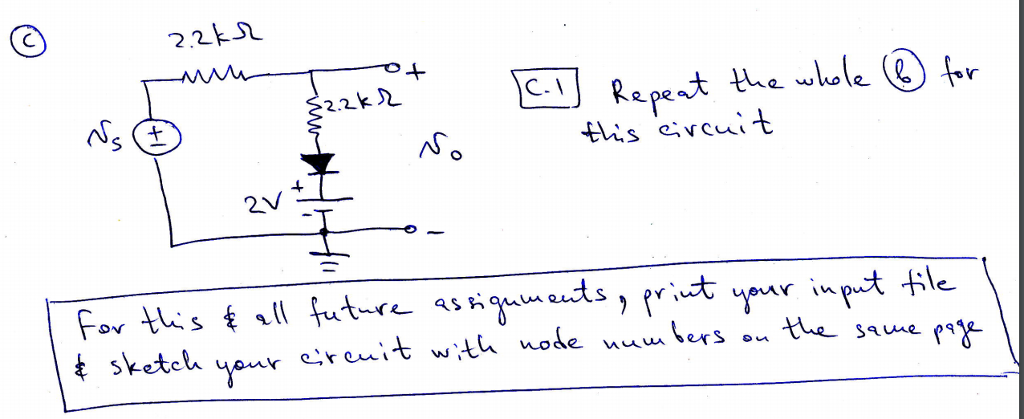 C
2.2kΩ
+
2.2kΩ
C.1 Repeat the whole b for
this circuit
Vs ±
Vo
2V +
-
-
For this & all future assignments, print your input file
& sketch your circuit with node numbers on the same page